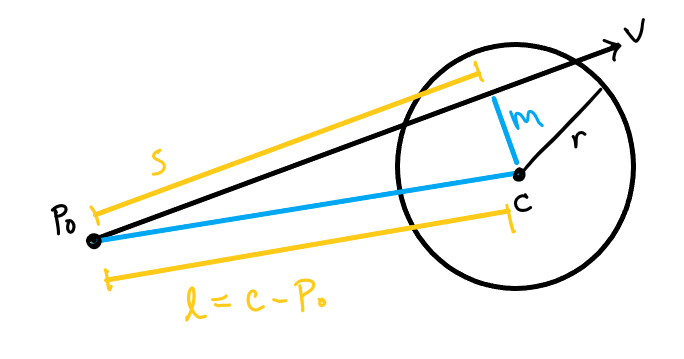 V
m
r
S
P₀
C
l = C - P₀